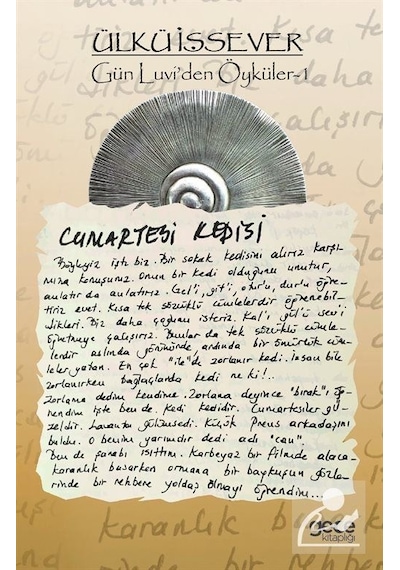 ÜLKÜ İSSEVER
Gün Luvi'den Öyküler-1
CUMARTESİ KEDİSİ
Böyleyiz işte biz. Bir sokak kedisini alırız karşı-
mıza konuşuruz. Onun bir kedi olduğunu unutur,
anlatır da anlatırız. Gel'i, git'i, otur'u, dur'u öğre-
tiriz evet. Kısa tek sözcüklü cümlelerdir öğrenebil-
dikleri. Biz daha çoğunu isteriz. Kal'ı, gül'ü sev'i
öğretmeye çalışırız. Bunlar da tek sözcüklü cümle-
lerdir aslında görünürde, ardında bir ömürlük cüm-
leler yatan. En çok "ile"de zorlanır kedi. İnsan bile
zorlanırken bağlaçlarda kedi ne ki!..
Zorlama dedim kendime. Zorlama deyince "bırak", öğ-
rendim işte ben de. Kedi kedidir. Cumartesiler gü-
zeldir. Lavanta gülümsedi. Küçük Prens arkadaşını
buldu. O benim yarımdır dedi adı "can".
Ben de şarabı ısıttım. Karbeyaz bir filmde alaca-
karanlık basarken ormana bir baykuşun gözle-
rinde bir rehbere yoldaş olmayı öğrendim...
gece
kitaplığı